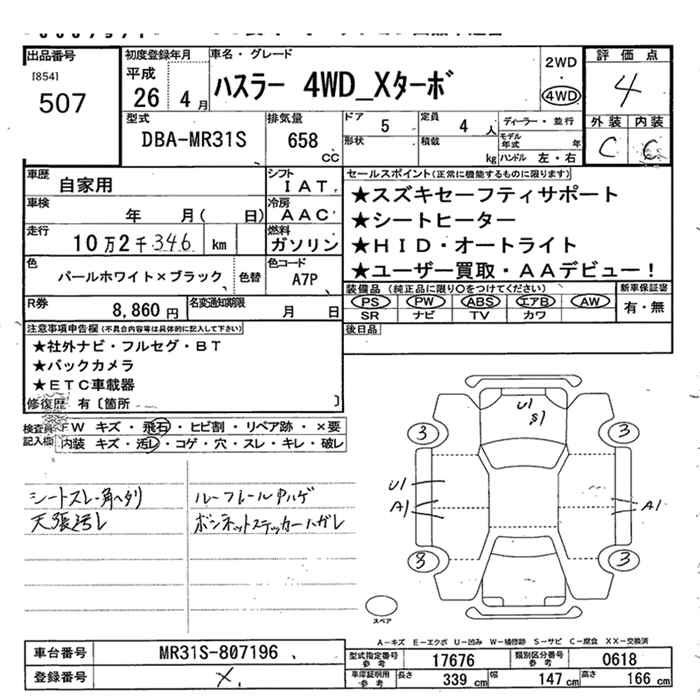 出品番号
[854]
507
初度登録年月
平成
26 4 月
車名・グレード
ハスラー 4WD_Xターボ
2WD
・
4WD
評価点
4
外装 内装
C C
型式
DBA-MR31S
排気量
658
CC
ドア 5
定員 4 人
形状
積載 kg
ディーラー・並行
モデル年式 年
ハンドル 左・右
車歴
自家用
シフト
IAT
車検
年 月( 日)
冷房
AAC
走行
10万2千346 km
燃料
ガソリン
色
パールホワイト×ブラック
色替
色コード
A7P
R券
8,860円
名変通知期限
月 日
セールスポイント(正常に機能するものに限ります)
★スズキセーフティサポート
★シートヒーター
★HID・オートライト
★ユーザー買取・AAデビュー!
装備品(純正品に限り○をつけてください)
PS PW ABS エアB AW
SR ナビ TV カワ
新車保証書
有・無
後日品
注意事項申告欄(不具合内容等は具体的に記入して下さい)
★社外ナビ・フルセグ・BT
★バックカメラ
★ETC車載器
修復歴 有〔箇所 〕
検査員記入欄
FW キズ・飛石・ヒビ割・リペア跡・×要
内装 キズ・汚レ・コゲ・穴・スレ・キレ・破レ
シートスレ・角ヘタリ
天張汚レ
ルーフレール中ハゲ
ボンネットステッカーハガレ
U1
S1
3 3
U1
A1
A1
3 3
スペア
A-キズ E-エクボ U-凹み W-補修跡 S-サビ C-腐食 XX-交換済
車台番号
MR31S-807196
登録番号
×
型式指定番号 参考
17676
類別区分番号 参考
0618
車庫証明用 参考
長さ 339 cm
幅 147 cm
高さ 166 cm